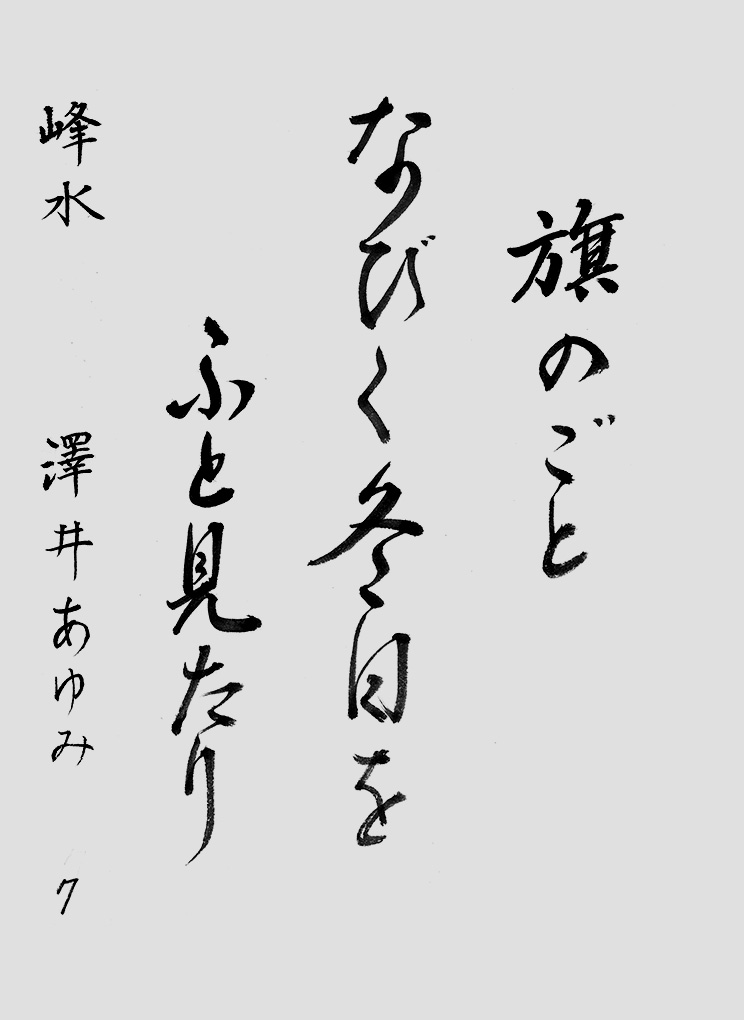 旗のごと
なびく冬日を
ふと見たり
峰水 澤井あゆみ 7